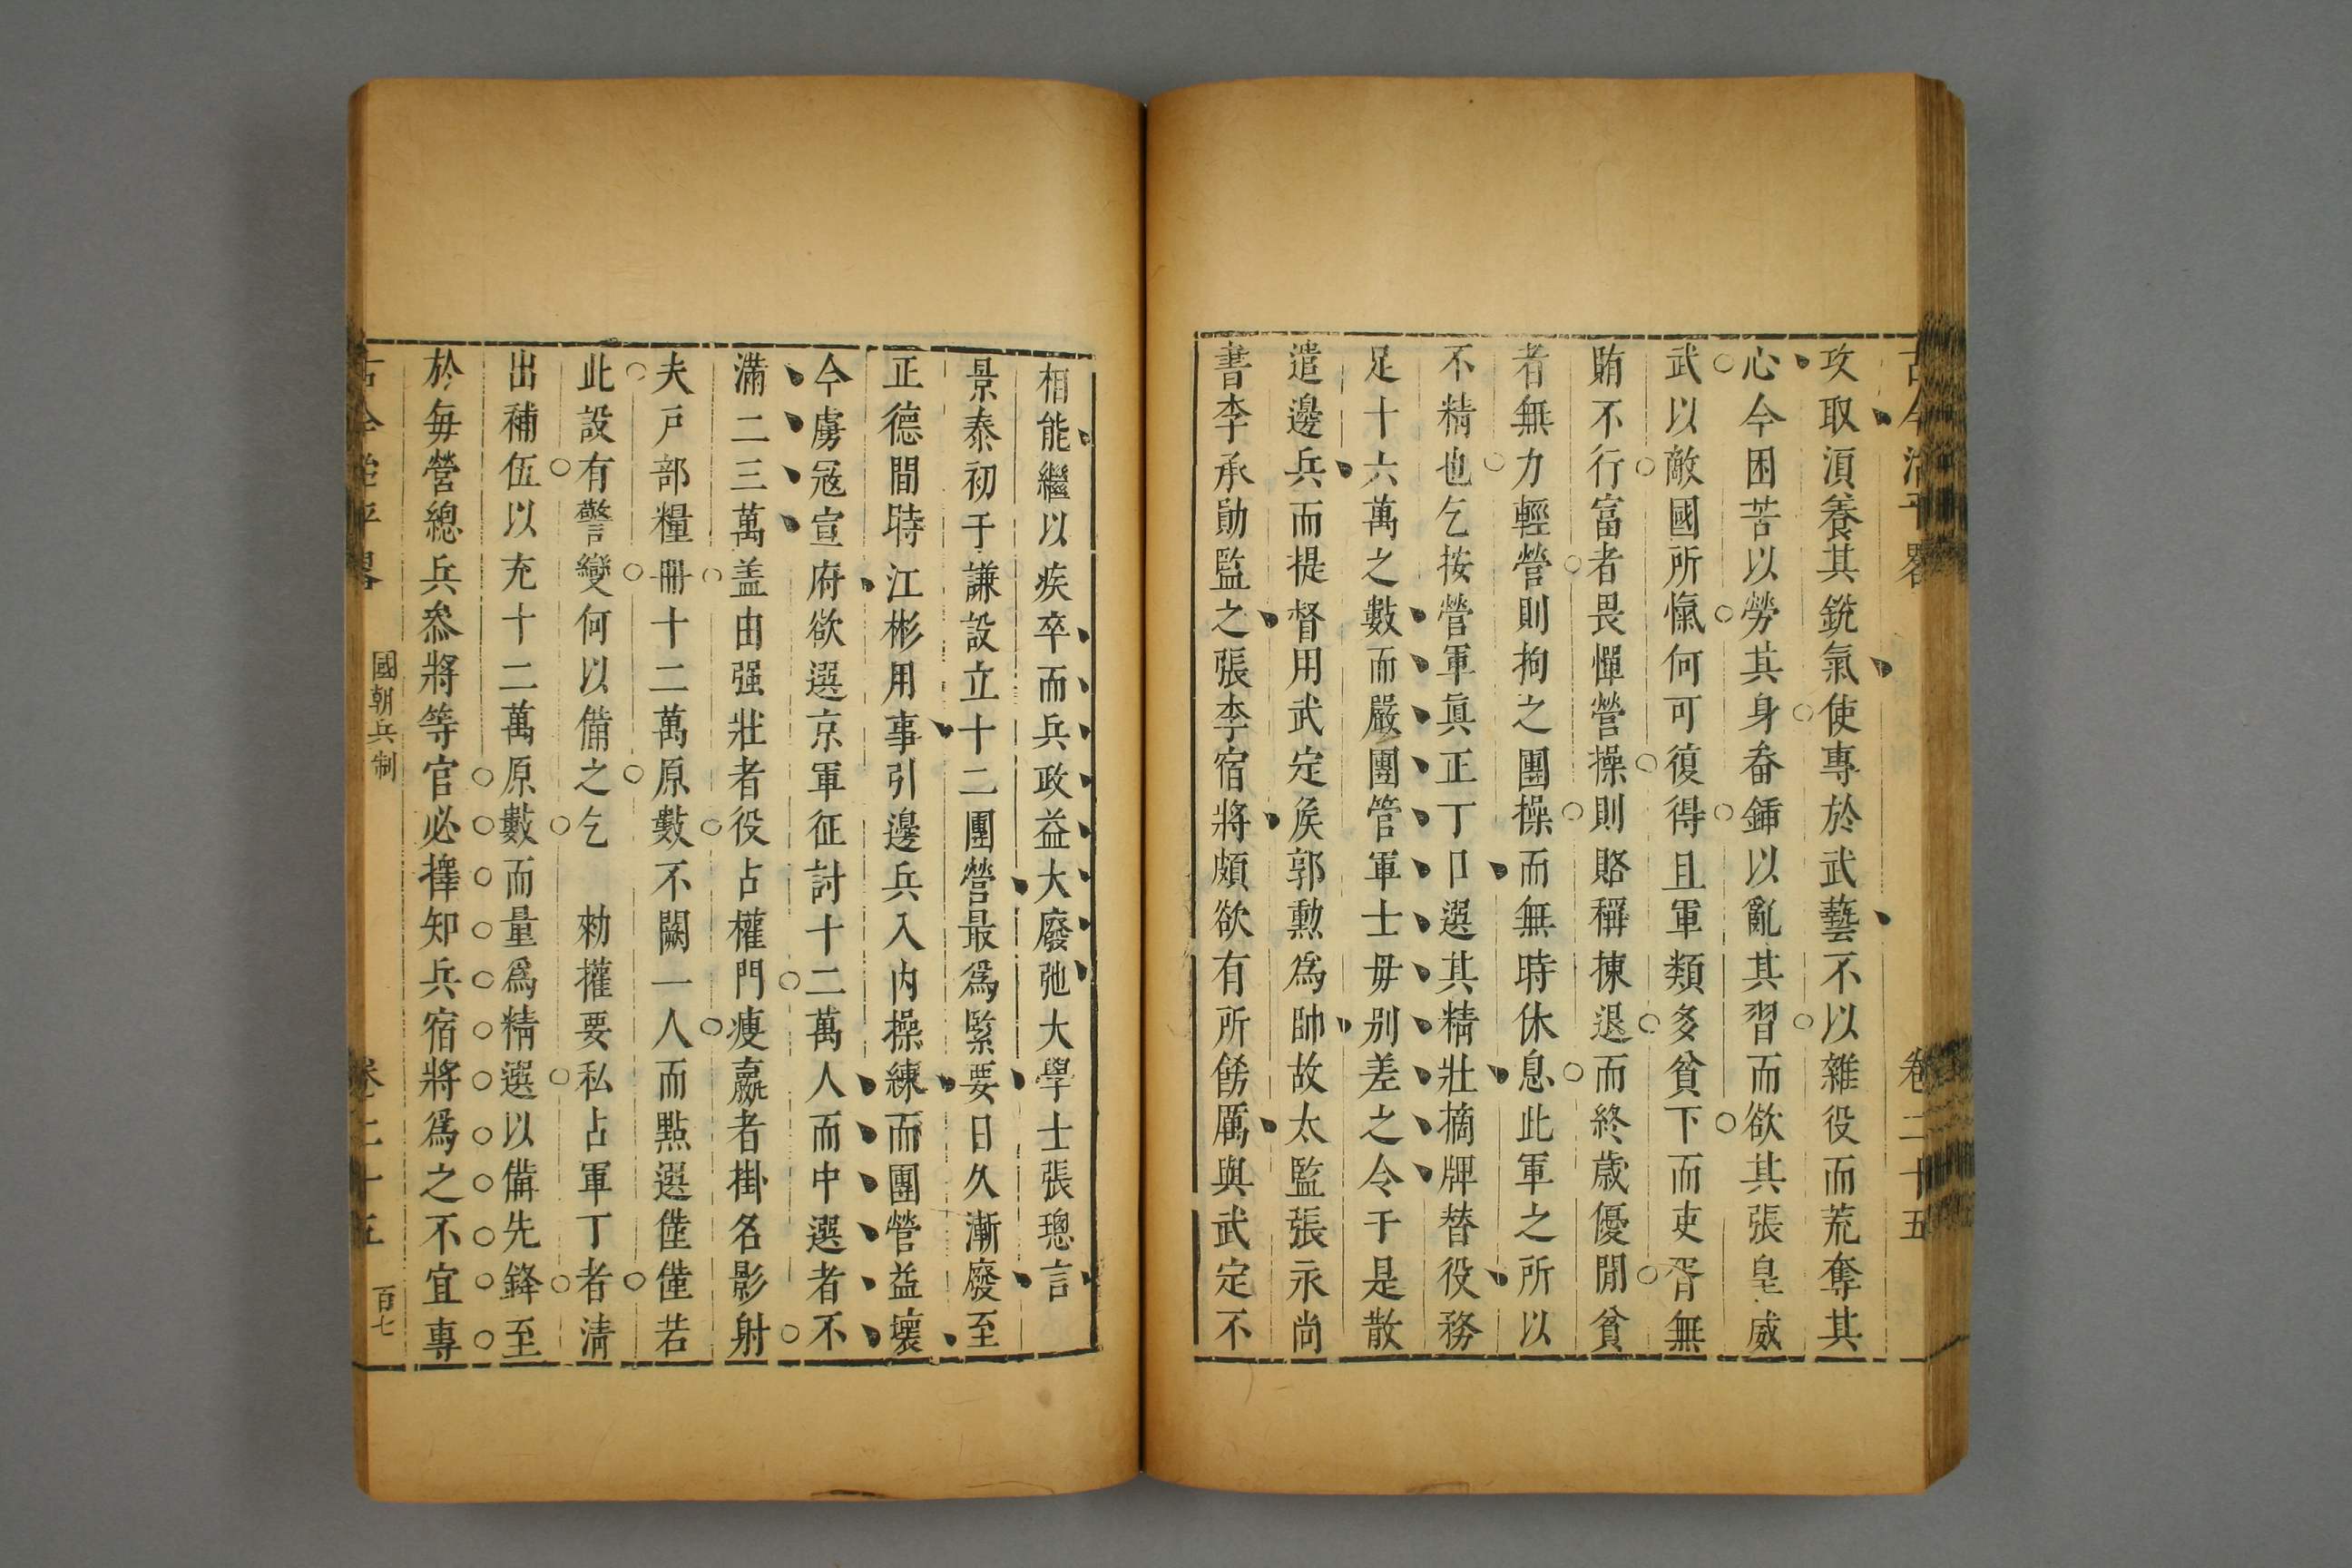 古今治平畧 卷二十五
攻取湏養其銳氣使專於武藝不以雜役而荒奪其
心今困苦以勞其身畚鍤以亂其習而欲其張皇威
武以敵國所愾何可復得且軍類多貧下而吏胥無
賄不行富者畏憚營操則賂稱揀退而終歲優閒貧
者無力輕營則拘之團操而無時休息此軍之所以
不精也乞按營軍眞正丁口選其精壯摘牌替役務
足十六萬之數而嚴團管軍士毋别差之令于是散
遣邊兵而提督用武定矦郭勲爲帥故太監張永尚
書李承勛監之張李宿將頗欲有所飭厲與武定不
相能繼以疾卒而兵政益大廢弛大學士張璁言
景泰初于謙設立十二團營最爲緊要日久漸廢至
正德間時江彬用事引邊兵入内操練而團營益壞
今虜冦宣府欲選京軍征討十二萬人而中選者不
滿二三萬盖由强壯者役占權門瘦羸者掛名影射
夫戸部糧冊十二萬原數不闕一人而點選僅僅若
此設有警變何以備之乞 勑權要私占軍丁者清
出補伍以充十二萬原數而量爲精選以備先鋒至
於每營總兵叅將等官必擇知兵宿將爲之不宜專
古今治平畧 國朝兵制 卷二十五 百七